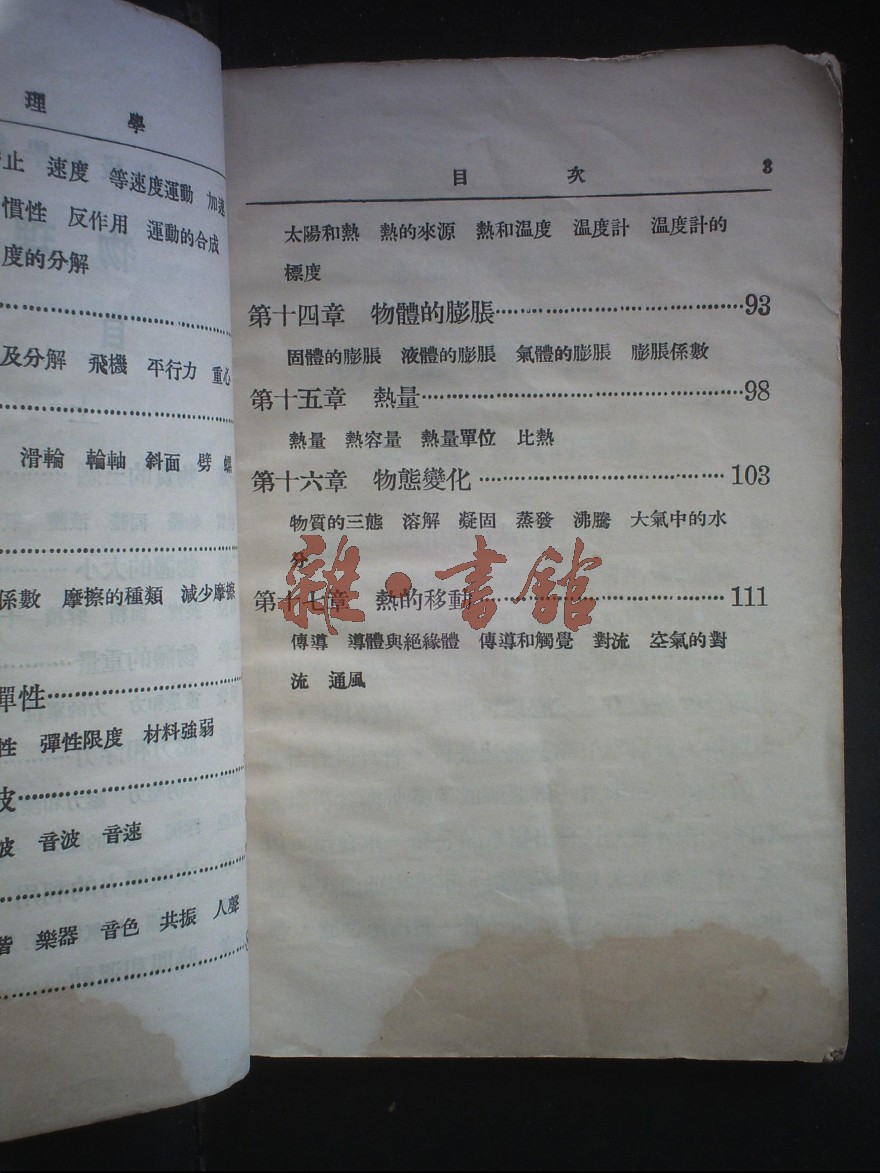 理學
止 速度 等速度運動 加速
慣性 反作用 運動的合成
度的分解
及分解 飛機 平行力 重心
滑輪 輪軸 斜面 劈 螺
係數 摩擦的種類 減少摩擦
彈性
性 彈性限度 材料強弱
波
波 音波 音速
階 樂器 音色 共振 人聲
目次 3
太陽和熱 熱的來源 熱和温度 温度計 温度計的
標度
第十四章 物體的膨脹 93
固體的膨脹 液體的膨脹 氣體的膨脹 膨脹係數
第十五章 熱量 98
熱量 熱容量 熱量單位 比熱
第十六章 物態變化 103
物质的三態 溶解 凝固 蒸發 沸騰 大氣中的水
分
第十七章 熱的移動 111
傳導 導體與絕緣體 傳導和觸覺 對流 空氣的對
流 通風
雜·書館